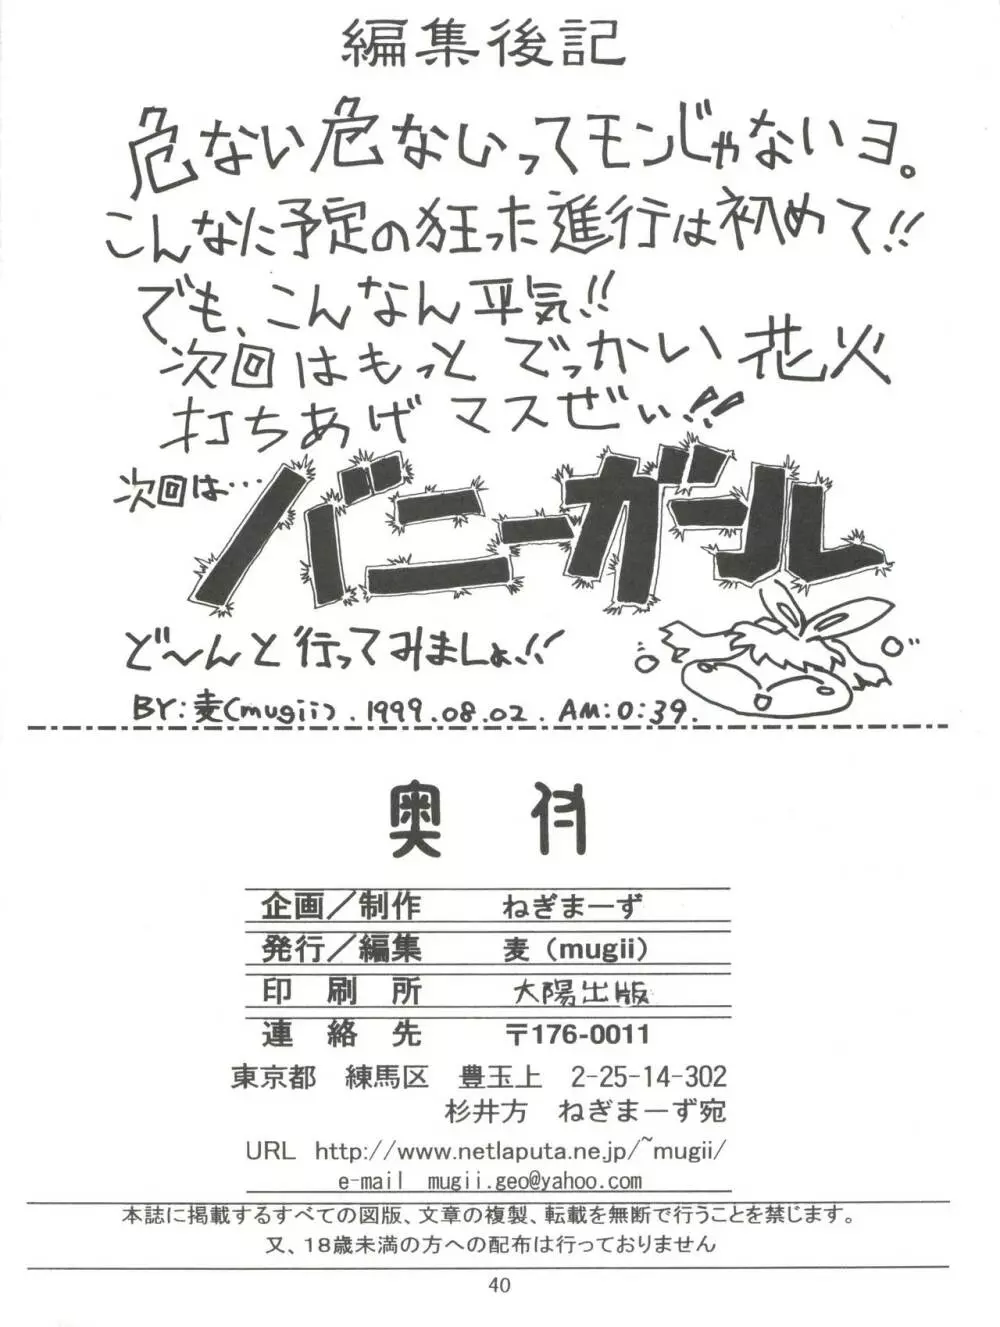 編集後記
危ない危ないってモンじゃないヨ。
こんなに予定の狂った進行は初めて!!
でも、こんなん平気!!
次回はもっとでっかい花火
打ちあげマスぜぃ!!
次回は…
バニーガール
ど〜んと行ってみましょ!!
BY:麦(mugii). 1999.08.02. AM:0:39.
奥付
企画／制作 ねぎまーず
発行／編集 麦（mugii）
印刷所 大陽出版
連絡先 〒176-0011
東京都 練馬区 豊玉上 2-25-14-302
杉井方 ねぎまーず宛
URL http://www.netlaputa.ne.jp/~mugii/
e-mail mugii.geo@yahoo.com
本誌に掲載するすべての図版、文章の複製、転載を無断で行うことを禁じます。
又、１８歳未満の方への配布は行っておりません
40